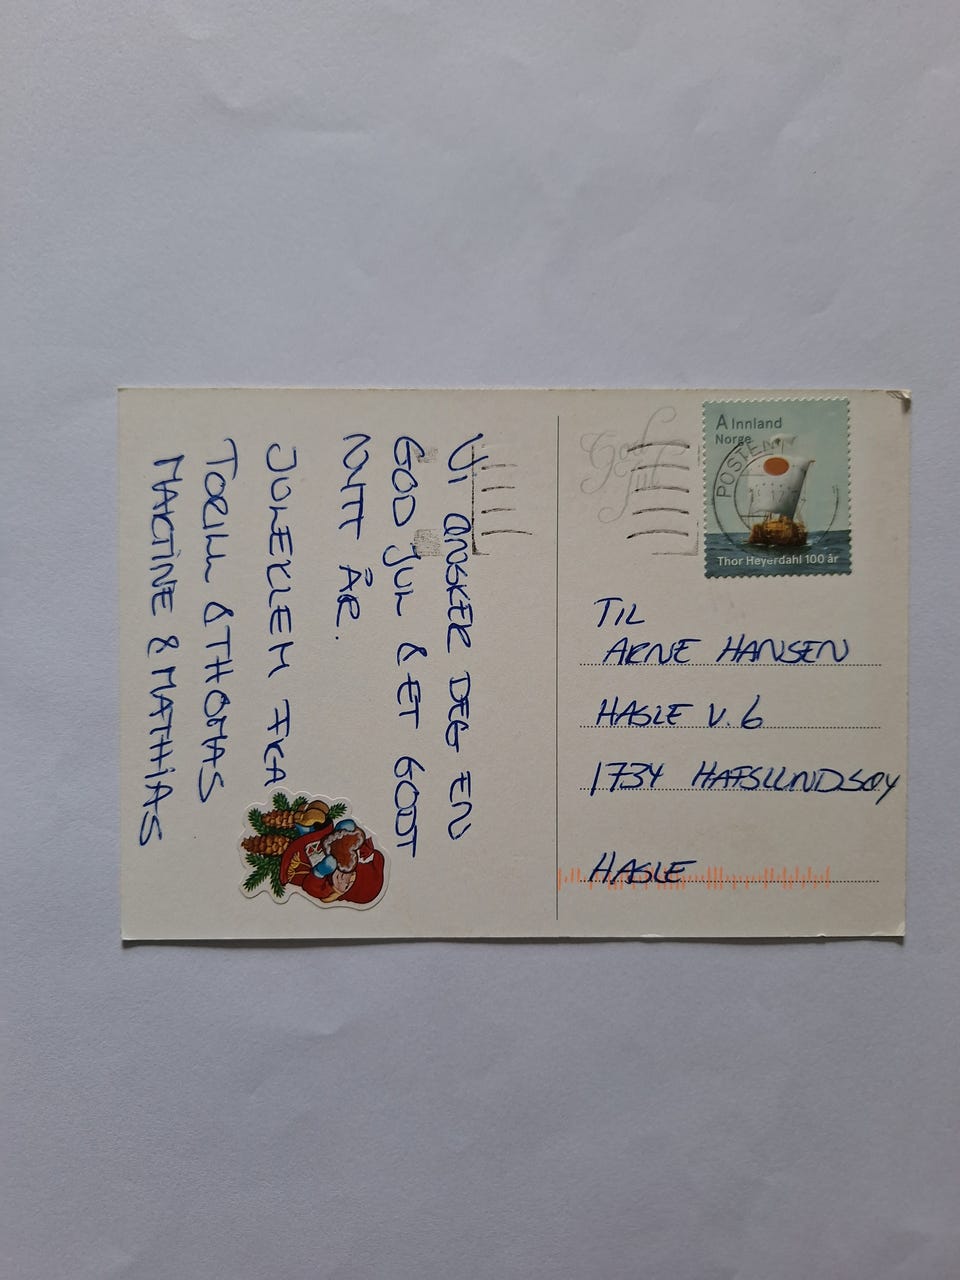 VI ØNSKER DEG EN
GOD JUL & ET GODT
NYTT ÅR.
JULEKLEM FRA
TORILL & THOMAS
MARTINE & MATHIAS
God
Jul
A Innland
Norge
POSTEN
Thor Heyerdahl 100 år
TIL
ARNE HANSEN
HASLE V. 6
1734 HAFSLUNDSØY
HASLE